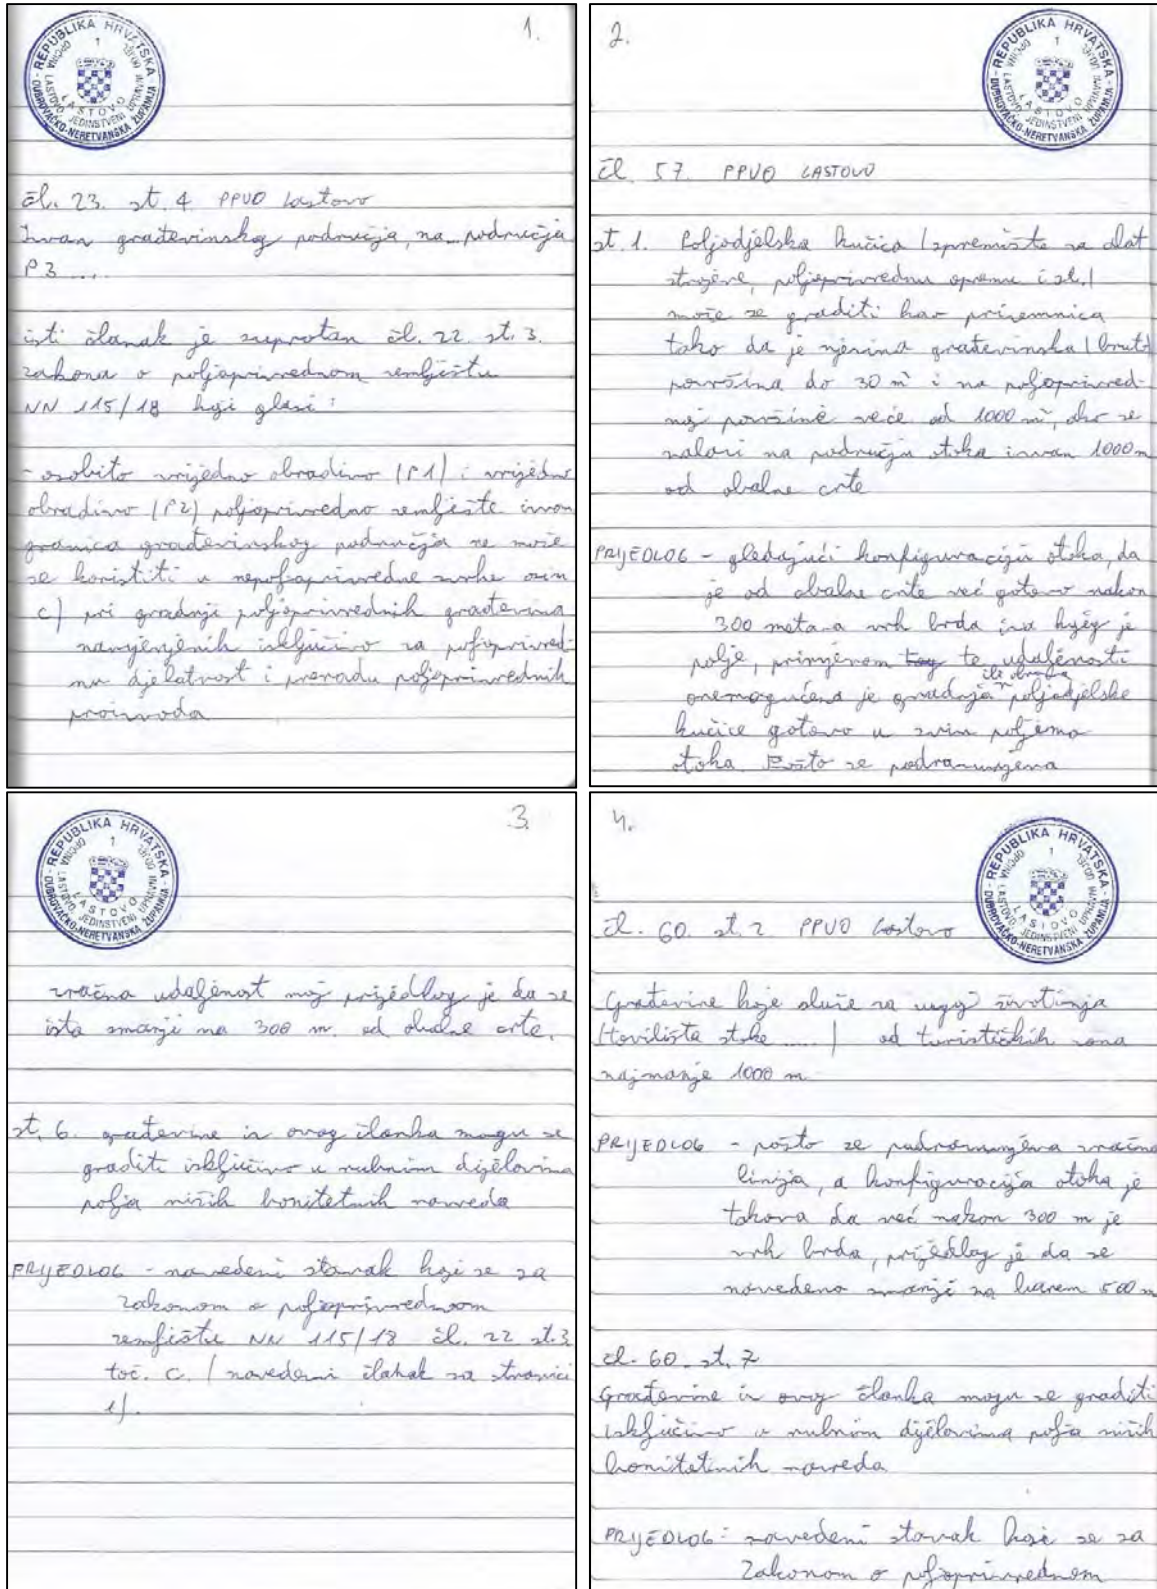 REPUBLIKA HRVATSKA
DUBROVAČKO-NERETVANSKA ŽUPANIJA
OPĆINA LASTOVO
JEDINSTVENI UPRAVNI ODJEL
LASTOVO
1
1.
čl. 23. st. 4. PPUO Lastovo
Izvan građevinskog područja, na...područja
P3....
isti članak je suprotan čl. 22. st. 3.
zakona o poljoprivrednom zemljištu
NN 115/18 koji glasi:
- osobito vrijedno obradivo (P1) i vrijedno
obradivo (P2) poljoprivredno zemljište izvan
granica građevinskog područja ne može
se koristiti u nepoljoprivredne svrhe osim
c) pri gradnji poljoprivrednih građevina
namjenjenih isključivo za poljoprivred-
nu djelatnost i preradu poljoprivrednih
proizvoda
2.
REPUBLIKA HRVATSKA
DUBROVAČKO-NERETVANSKA ŽUPANIJA
OPĆINA LASTOVO
JEDINSTVENI UPRAVNI ODJEL
LASTOVO
1
čl. 57. PPUO LASTOVO
st. 1. Poljodjelska kućica (spremište za alat
strojeve, poljoprivrednu opremu i sl.)
može se graditi kao prizemnica
tako da je njezina građevinska (bruto)
površina do 30 m² i na poljoprivred-
noj površine veće od 1000 m², ako se
nalazi na području otoka izvan 1000 m
od obalne crte
PRIJEDLOG - gledajući konfiguraciju otoka, da
je od obalne crte već gotovo nakon
300 metara vrh brda iza kojeg je
polje, primjenom te udaljenosti
onemogućena je gradnja ili obnova poljodjelske
kućice gotovo u svim poljima
otoka. Pošto se podrazumjeva
3.
REPUBLIKA HRVATSKA
DUBROVAČKO-NERETVANSKA ŽUPANIJA
OPĆINA LASTOVO
JEDINSTVENI UPRAVNI ODJEL
LASTOVO
1
zračna udaljenost moj prijedlog je da se
ista smanji na 300 m. od obalne crte.
st. 6. građevine iz ovog članka mogu se
graditi isključivo u rubnim dijelovima
polja nižih bonitetnih razreda
PRIJEDLOG - navedeni stavak koji se sa
Zakonom o poljoprivrednom
zemljištu NN 115/18 čl. 22 st.3
toč. c. (navedeni članak na stranici
1).
4.
REPUBLIKA HRVATSKA
DUBROVAČKO-NERETVANSKA ŽUPANIJA
OPĆINA LASTOVO
JEDINSTVENI UPRAVNI ODJEL
LASTOVO
1
čl. 60. st. 2 PPUO Lastovo
Građevine koje služe za uzgoj životinja
(tovilišta stoke .....) od turističkih zona
najmanje 1000 m
PRIJEDLOG - pošto se podrazumjeva zračna
linija, a konfiguracija otoka je
takova da već nakon 300 m je
vrh brda, prijedlog je da se
navedeno smanji na barem 500 m
čl. 60. st. 7
Građevine iz ovog članka mogu se graditi
isključivo u rubnim dijelovima polja nižih
bonitetnih razreda
PRIJEDLOG: navedeni stavak koji se sa
Zakonom o poljoprivrednom